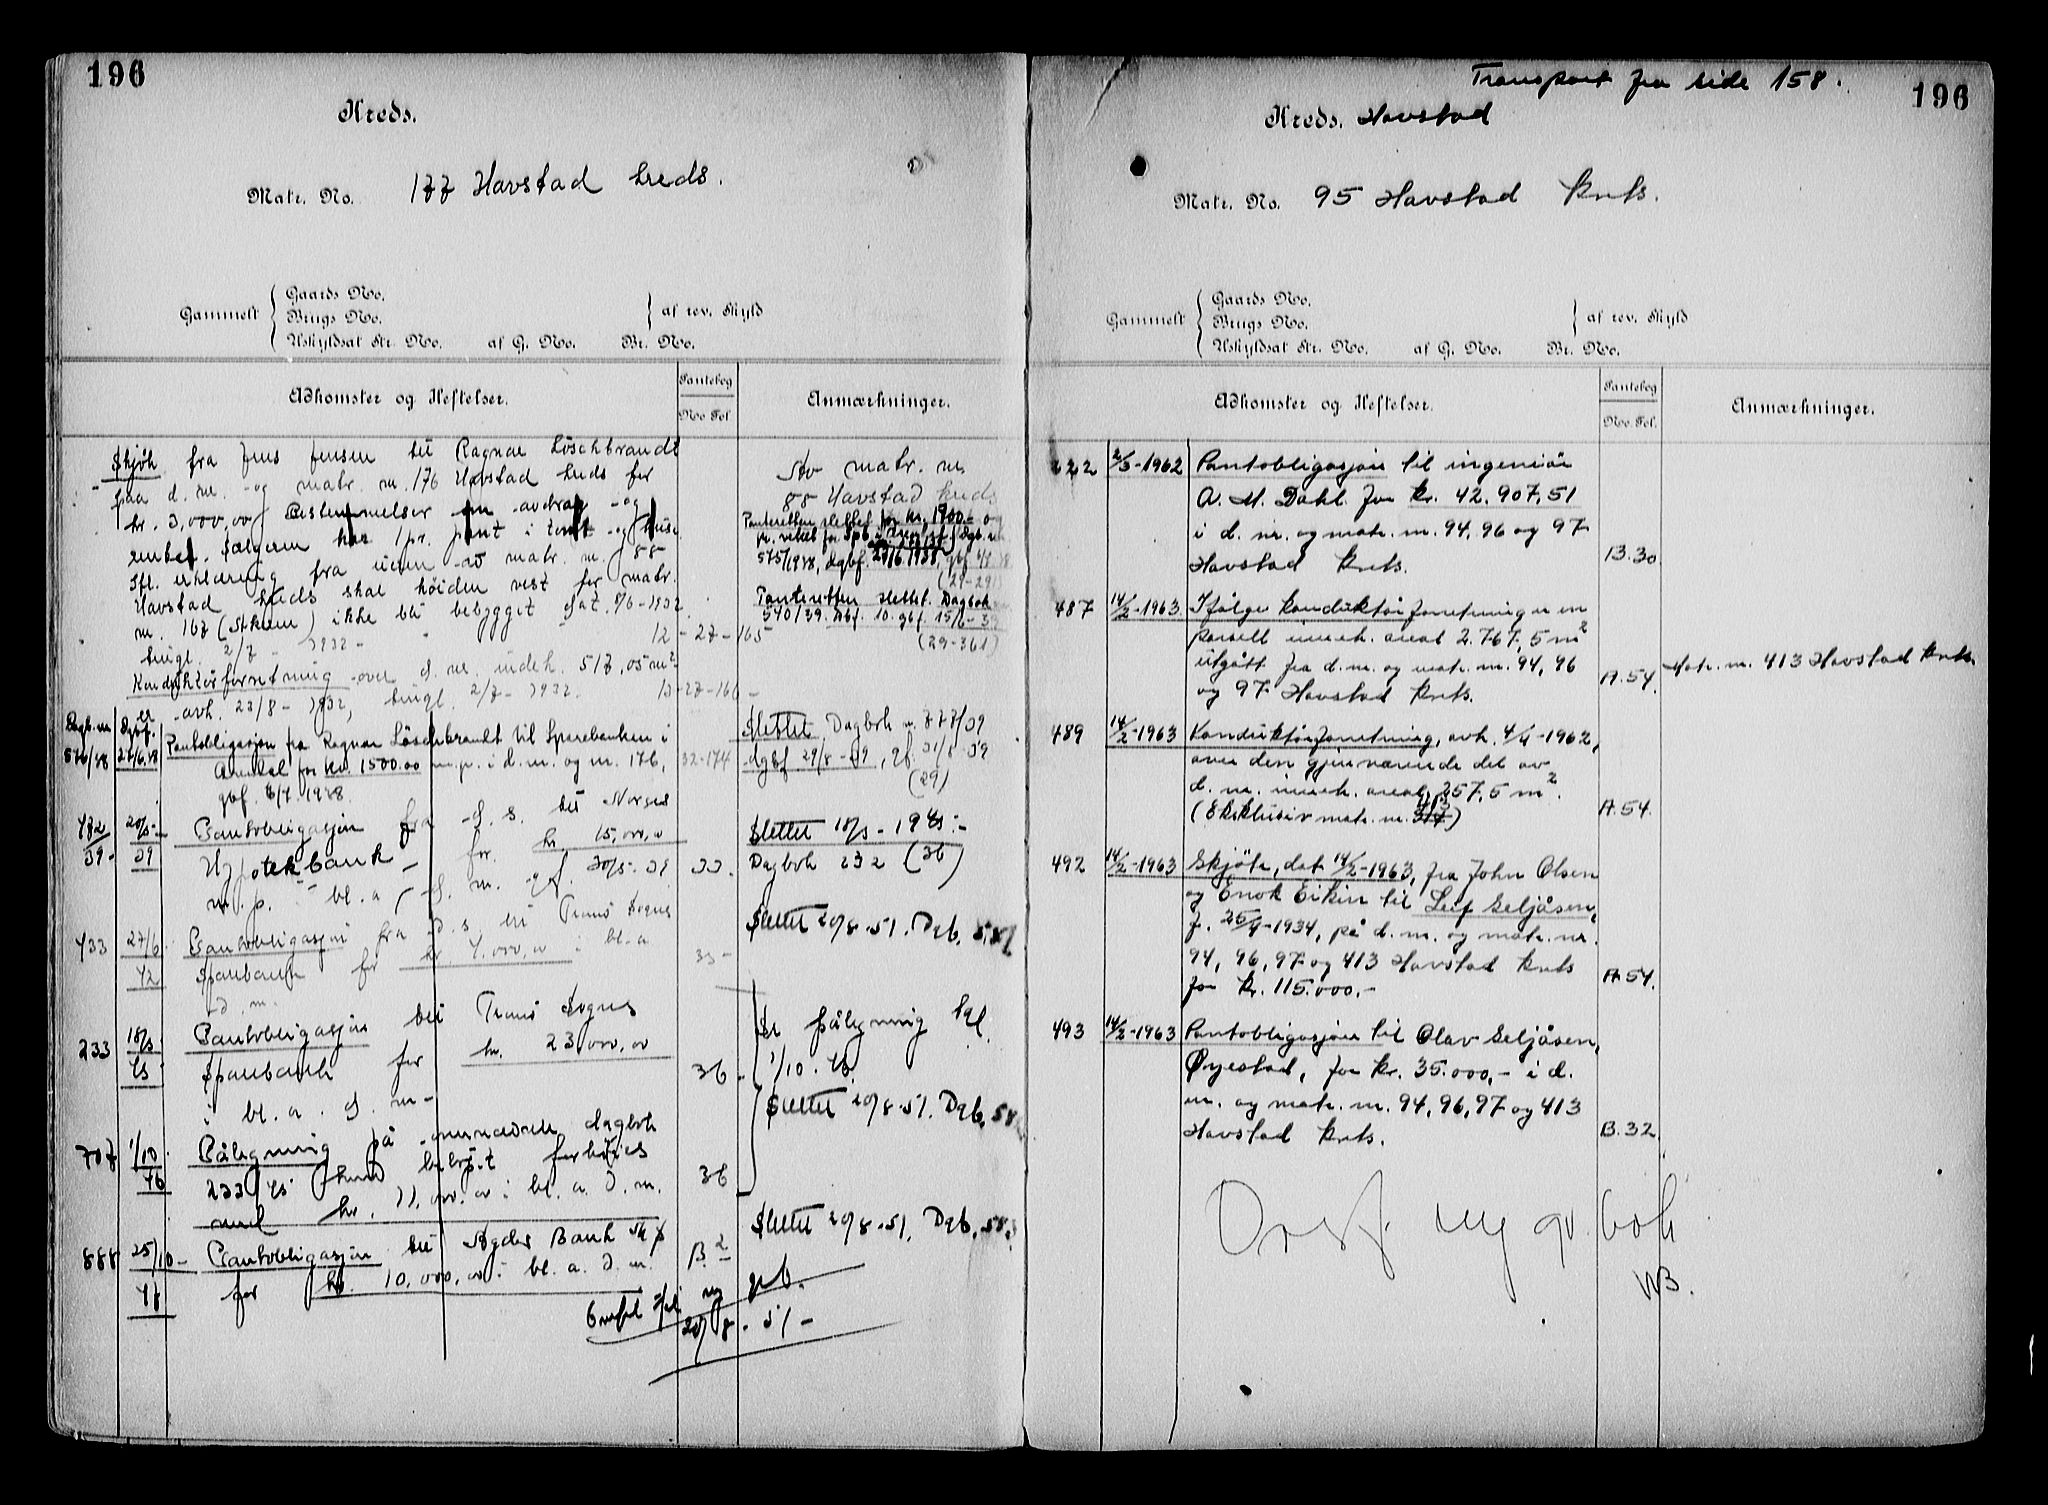 196
Kreds.
Matr. No. 177 Havstad kreds.
Gammelt
Gaards No.
Brugs No.
Uskyldsat Str. No. af G. No. Br. No.
af rev. Skyld
Adkomster og Heftelser.
Pantebog
No Fol.
Anmærkninger.
Skjøh fra Jens Jensen til Ragnar Löschbrandt
paa d. nr. og matr. nr. 176 Havstad kreds for
kr. 3,000,00 Bestemmelser om avdrag og
renter. Sælgeren har 1 pr. pant i tomt og huse
Ifl. erklæring fra eieren av matr. nr. 88
Havstad kreds skal høiden vest for matr.
nr. 167 ikke bli bebygget dat. 8/6-1932
tingl. 2/7 - 1932 - 12-27-165
Konduktørforretning over d. nr. indeh. 517,05 m²
avh. 23/8 - 1932, tingl. 2/7 - 1932. 12-27-166
Av matr. nr.
88 Havstad kreds
Panteretten slettet for kr. 1900.- og
575/1938, dgbf. 27/6.1938,
Panteretten slettet. Dagbok
540/39. Dbf. 10. gbf. 15/6-39
(29-361)
Dagb. nr. Dgbf.
576/38 27/6.38 Pantobligasjon fra Ragnar Löschbrandt til Sparebanken i
Arendal for kr. 1500.00 m.p. i d. nr. og nr. 176, 32-174
gbf. 6/7. 1938.
Slettet Dagbok nr. 777/39
dgbf 29/8-39, gf. 31/8-39
(29)
432/39. 20/5-39 Pantobligasjon fra d. s. til Norges
Hypotekbank for kr. 15,000,00
m. p. i bl. a. d. nr. gf. 30/5-39 33.
Slettet 18/3-1945.-
Dagbok 232 (36)
433 27/6 42 Pantobligasjon fra d. s. til Tromø Sogns
Sparebank for kr. 4,000,00 i bl. a. 33-
d. nr.
Slettet 20/8-51. Dgb.
233 18/3 45 Pantobligasjon til Tromø Sogns
Sparebank for kr. 23,000,00 36.
i bl. a. d. nr.
Se påtegning tgl.
1/10.46
Slettet 20/8-51. Dgb.
707 1/10 46 Påtegning på dagbok
233/45 hvis beløpet forhøies 36
med kr. 11,000.00 i bl. a. d. nr.
Slettet 20/8-51. Dgb.
888 25/10-47 Pantobligasjon til Agder Bank B. 2
for kr. 10,000,00 i bl. a. d. nr.
ny gb.
20/8-51-
Transport fra side 158.
196
Kreds. Havstad
Matr. No. 95 Havstad krets.
Gammelt
Gaards No.
Brugs No.
Uskyldsat Str. No. af G. No. Br. No.
af rev. Skyld
Adkomster og Heftelser.
Pantebog
No. Fol.
Anmærkninger.
222 2/3-1962 Pantobligasjon til ingeniør
A. M. Dahl for kr. 42.907,51
i d. nr. og matr. nr. 94, 96 og 97
Havstad krets. B.30
487 14/2-1963 Ifølge konduktørforretning er en
parsell inneh. areal 2.767,5 m²
utgått fra d. nr. og matr. nr. 94, 96
og 97 Havstad krets. A.54. Matr. nr. 413 Havstad krets.
489 14/2-1963 Konduktørforretning, avh. 4/4-1962,
over den gjenværende del av
d. nr. inneh. areal 257,5 m².
(Eksklusiv matr. nr. 413) A.54.
492 14/2-1963 Skjøte, dat 14/2-1963, fra John Olsen
og Enok Eikin til Leif Seljåsen,
f. 25/4-1934, på d. nr. og matr. nr.
94, 96, 97 og 413 Havstad krets
for kr. 115.000.- A.54.
493 14/2-1963 Pantobligasjon til Olav Seljåsen,
Øyestad, for kr. 35.000,- i d.
nr. og matr. nr. 94, 96, 97 og 413
Havstad krets. B.32
Overf. ny gr. bok